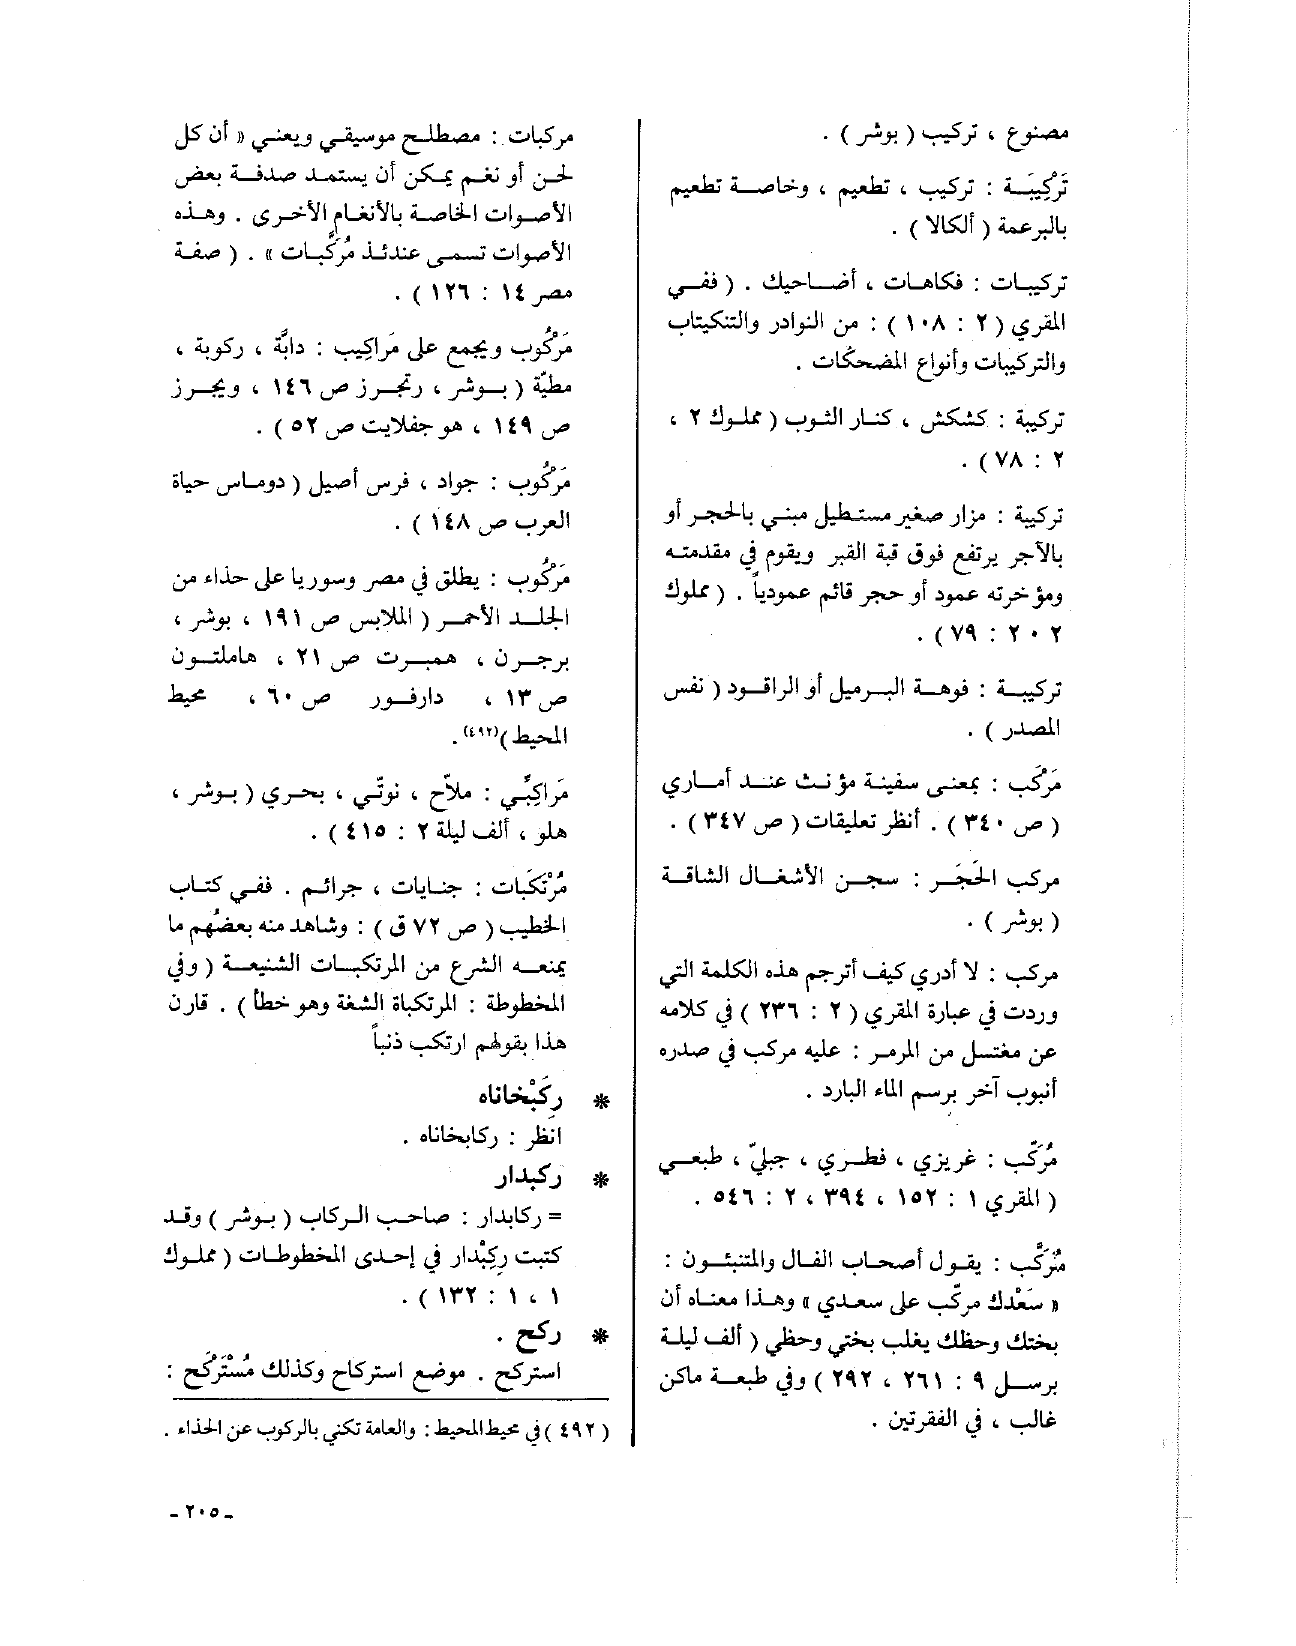 مصنوع ، تركيب ( بوشر ) .
تَرْكِيبَة : تركيب ، تطعيم ، وخاصة تطعيم
بالبرعمة ( ألكالا ) .
تركيبات : فكاهات ، أضاحيك . ( ففي
المقري ( ٢ : ١٠٨ ) : من النوادر والتنكيتاب
والتركيبات وأنواع المضحكات .
تركيبة : كشكش ، كنار الثوب ( مملوك ٢ ،
٢ : ٧٨ ) .
تركيبة : مزار صغير مستطيل مبني بالحجر أو
بالآجر يرتفع فوق قبة القبر ويقوم في مقدمته
ومؤخرته عمود أو حجر قائم عمودياً . ( مملوك
٢ ٠ ٢ : ٧٩ ) .
تركيبة : فوهة البرميل أو الراقود ( نفس
المصدر ) .
مَرْكَب : بمعنى سفينة مؤنث عند أماري
( ص ٣٤٠ ) . أنظر تعليقات ( ص ٣٤٧ ) .
مركب الحَجَر : سجن الأشغال الشاقة
( بوشر ) .
مركب : لا أدري كيف أترجم هذه الكلمة التي
وردت في عبارة المقري ( ٢ : ٢٣٦ ) في كلامه
عن مغتسل من المرمر : عليه مركب في صدره
أنبوب آخر برسم الماء البارد .
مُرَكَّب : غريزي ، فطري ، جبليّ ، طبعي
( المقري ١ : ١٥٢ ، ٣٩٤ ، ٢ : ٥٤٦ .
مُرَكَّب : يقول أصحاب الفال والمتنبئون :
« سَعْدك مركّب على سعدي » وهذا معناه أن
بختك وحظك يغلب بختي وحظي ( ألف ليلة
برسل ٩ : ٢٦١ ، ٢٩٢ ) وفي طبعة ماكن
غالب ، في الفقرتين .
مركبات : مصطلح موسيقي ويعني « أن كل
لحن أو نغم يمكن أن يستمد صدفة بعض
الأصوات الخاصة بالأنغام الأخرى . وهذه
الأصوات تسمى عندئذ مُرَكَّبات » . ( صفة
مصر ١٤ : ١٢٦ ) .
مَرْكُوب ويجمع على مَراكِيب : دابَّة ، ركوبة ،
مطيّة ( بوشر ، رتجرز ص ١٤٦ ، ويجرز
ص ١٤٩ ، هو جفلايت ص ٥٢ ) .
مَرْكُوب : جواد ، فرس أصيل ( دوماس حياة
العرب ص ١٤٨ ) .
مَرْكُوب : يطلق في مصر وسوريا على حذاء من
الجلد الأحمر ( الملابس ص ١٩١ ، بوشر ،
برجرن ، همبرت ص ٢١ ، هاملتون
ص ١٣ ، دارفور ص ٦٠ ، محيط
المحيط )(٤٩٢) .
مَراكِبِّي : ملاّح ، نوتّي ، بحري ( بوشر ،
هلو ، ألف ليلة ٢ : ٤١٥ ) .
مُرْتَكَبَات : جنايات ، جرائم . ففي كتاب
الخطيب ( ص ٧٢ ق ) : وشاهد منه بعضُهم ما
يمنعه الشرع من المرتكبات الشنيعة ( وفي
المخطوطة : المرتكباة الشغة وهو خطأ ) . قارن
هذا بقولهم ارتكب ذنباً
* رِكَبْخاناه
انظر : ركابخاناه .
* ركبدار
= ركابدار : صاحب الركاب ( بوشر ) وقد
كتبت ركِبْدار في إحدى المخطوطات ( مملوك
١ ، ١ : ١٣٢ ) .
* ركح .
استركح . موضع استركاح وكذلك مُسْتَرْكَح :
( ٤٩٢ ) في محيط المحيط : والعامة تكني بالركوب عن الحذاء .
ـ ٢٠٥ ـ